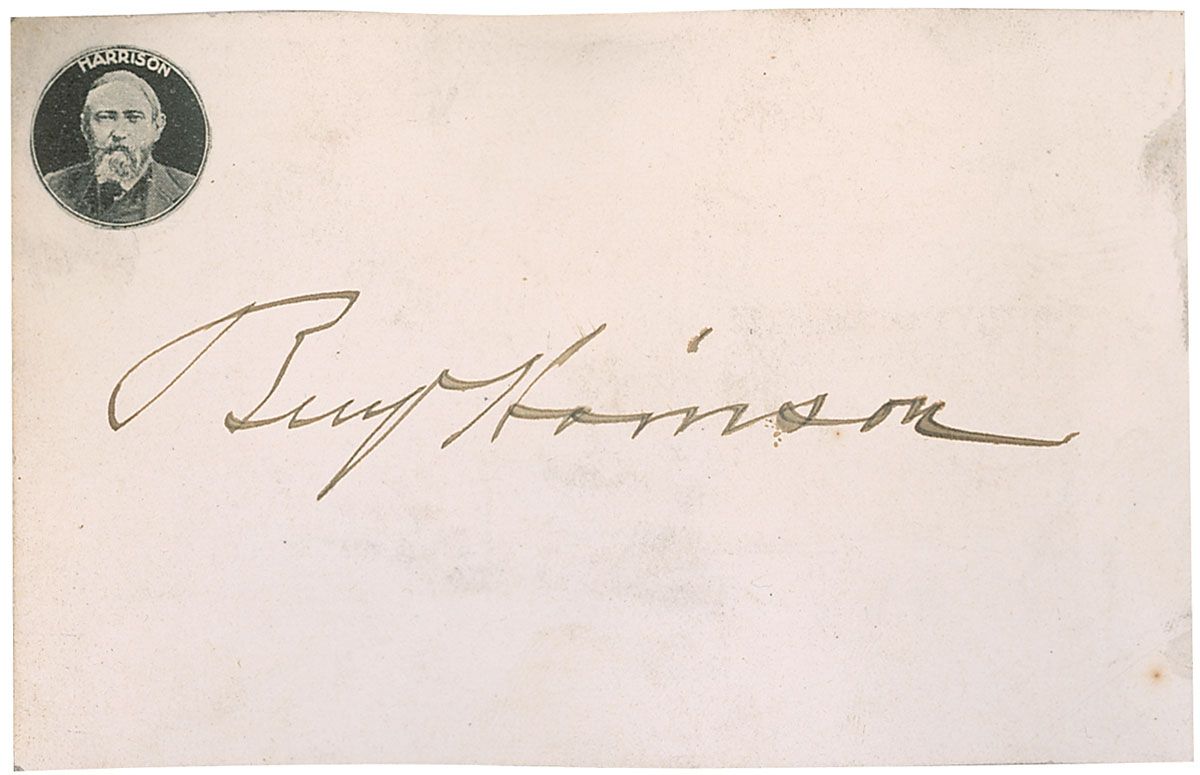 HARRISON
Benj Harrison